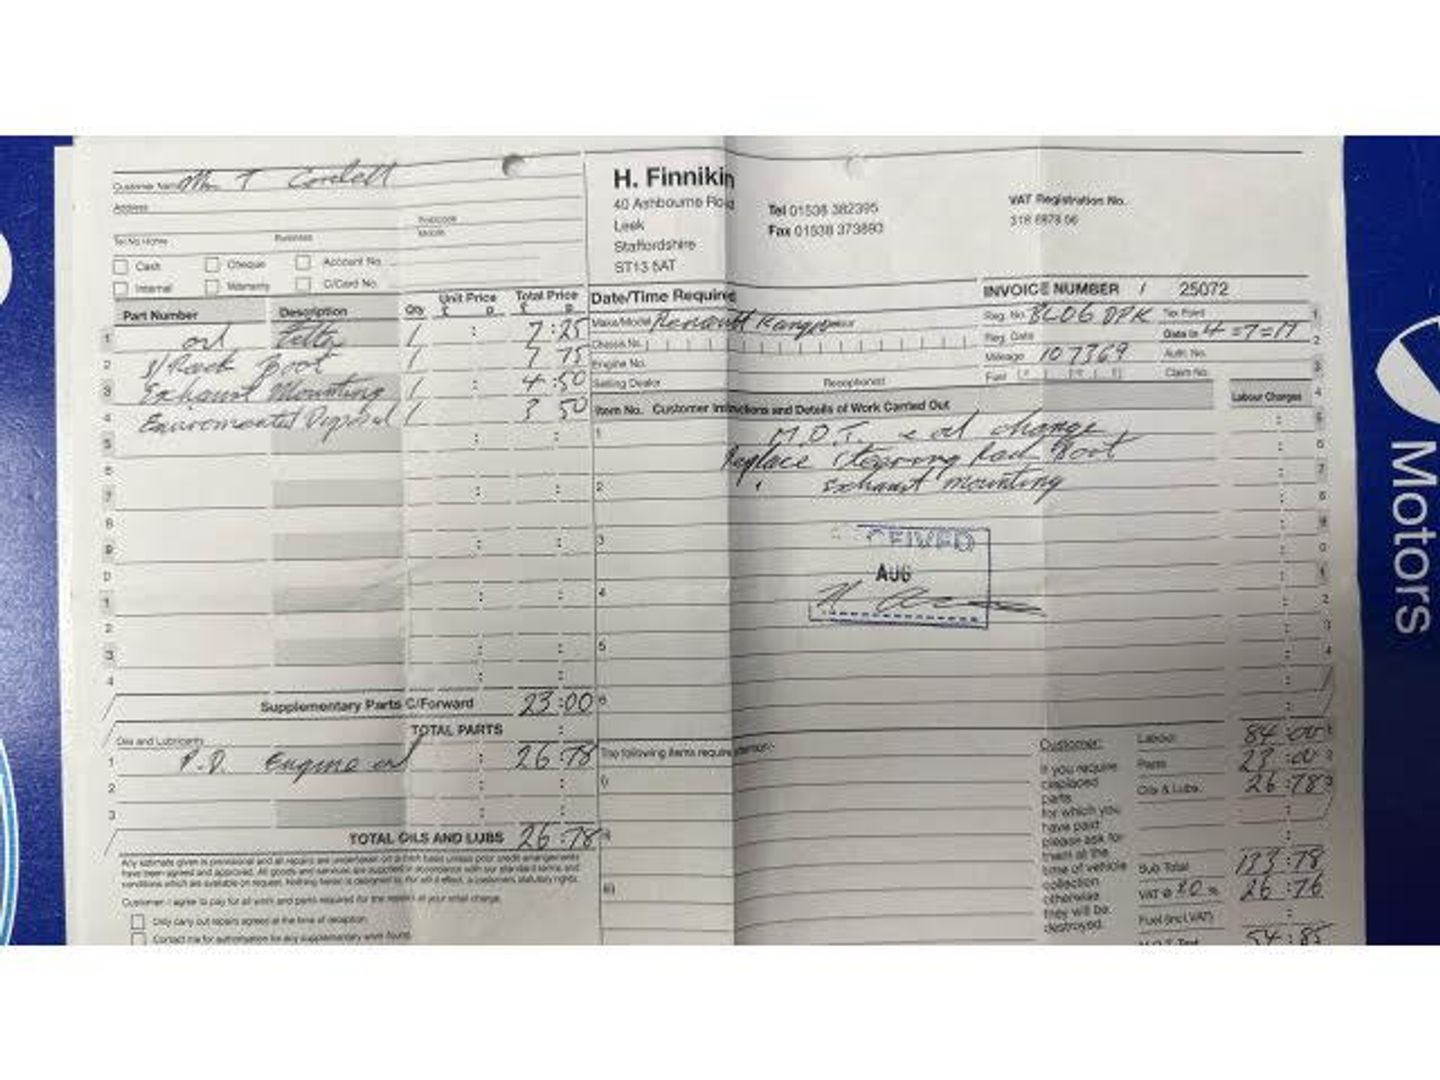 Customer Name Mr T Cordell
Address
Postcode
Tel No Home Business Mobile
Cash Cheque Account No.
Internal Warranty C/Card No.
H. Finnikin
40 Ashbourne Road
Leek
Staffordshire
ST13 5AT
Tel 01538 382395
Fax 01538 373893
VAT Registration No.
318 6878 56
INVOICE NUMBER / 25072
Part Number Description Qty Unit Price £ p Total Price £ p
1 oil Filter 1 7:25
2 S/Rack Boot 1 7 75
3 Exhaust Mounting 1 4:50
4 Enviromental Disposal 1 3 50
Supplementary Parts C/Forward 23:00
TOTAL PARTS
Oils and Lubricants
1 P.D. Engine oil 26:78
2
3
TOTAL OILS AND LUBS 26:78
Any estimate given is provisional and all repairs are undertaken on a cash basis unless prior credit arrangements
have been agreed and approved. All goods and services are supplied in accordance with our standard terms and
conditions which are available on request. Nothing herein is designed to, nor will it effect, a customers statutory rights.
Customer: I agree to pay for all work and parts required for the repairs at your retail charge.
Only carry out repairs agreed at the time of reception.
Contact me for authorisation for any supplementary work found.
Date/Time Required
Make/Model Renault Kangoo
Chassis No.
Engine No.
Selling Dealer Receptionist
Reg. No. BL06 DPK Tax Point
Reg. Date Date In 4=7=17
Mileage 107369 Auth. No.
Fuel Claim No.
Item No. Customer Instructions and Details of Work Carried Out Labour Charges
1 M.O.T. & oil change
Replace steering Rack Boot
2 Exhaust mounting
3
RECEIVED
AUG
4
5
6
The following items require attention:-
i)
iii)
Customer:
If you require
displaced
parts
for which you
have paid
please ask for
them at the
time of vehicle
collection
otherwise
they will be
destroyed.
Labour 84:00
Parts 23:00
Oils & Lubs. 26:78
Sub Total 133:78
VAT @ 20 % 26:76
Fuel (incl.VAT)
M.O.T. Test 54:85
Motors